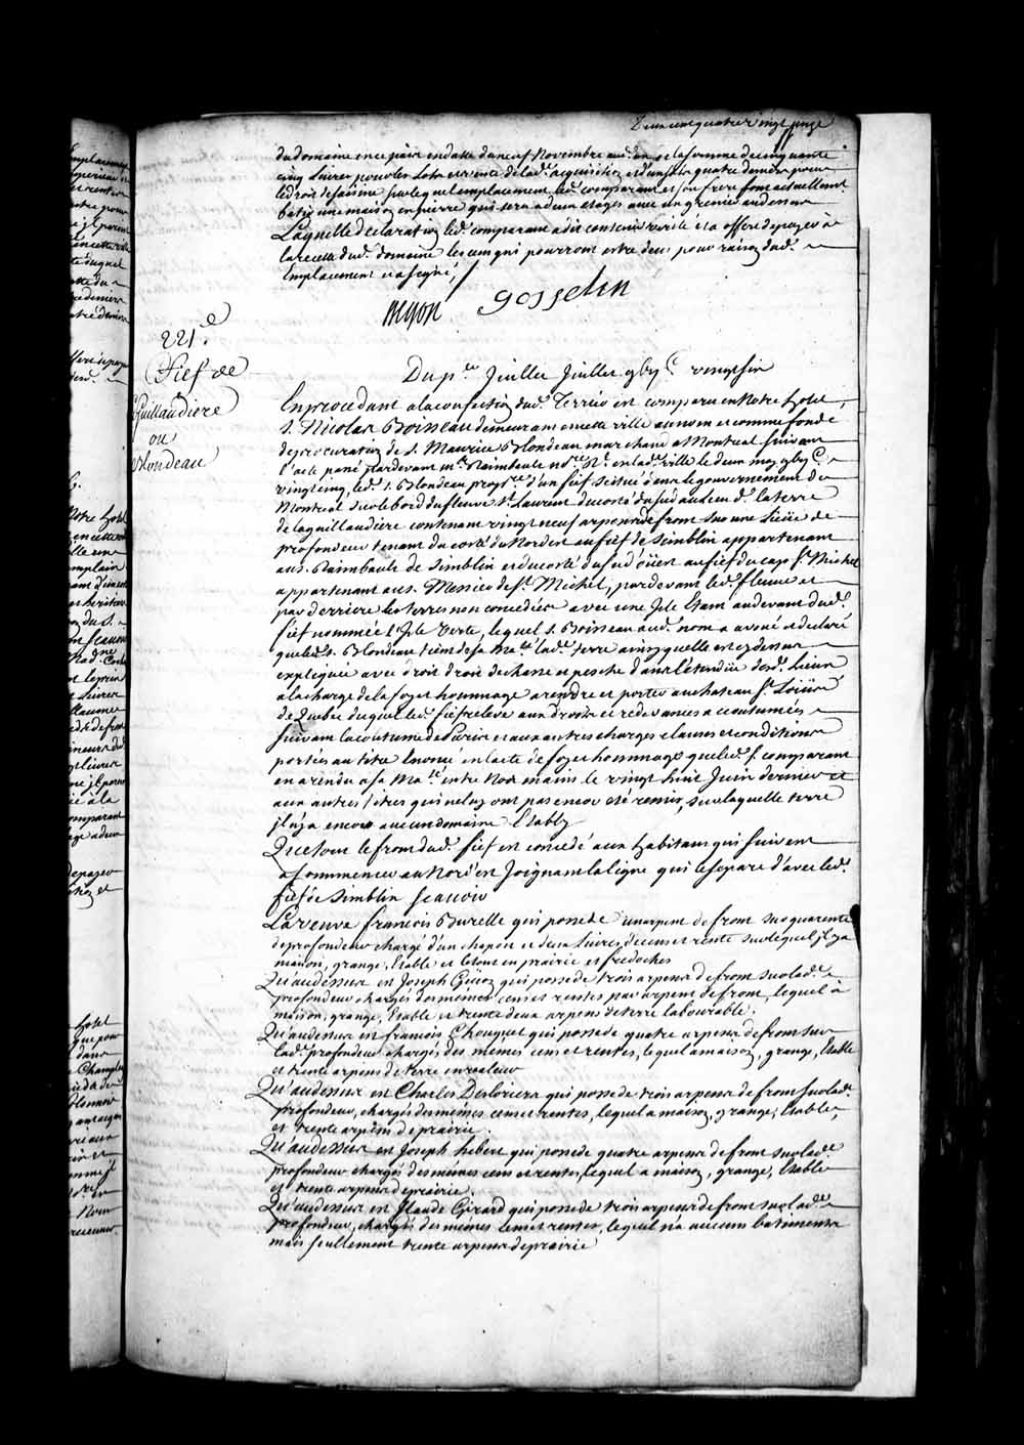 Deux cent quatre vingt onze
du domaine en ce païs en datte du neuf Novembre aud. an de la somme de cinquante
cinq livres pour les Lots et vente de lad. acquisition et d'un sol quatre deniers pour
led. droit de saisine sur lequel emplacement led. comparant et son frere font actuellemt
batir une maison en pierre qui sera a deux etages avec un grenier au dessus
Laquelle declaration led. comparant a dit contenir verité et a offert de payer à
la recette dud. domaine les cens qui pourront estre deus pour raison dud.
Emplacement et a signé,
gosselin
221e
Fief de
Guillaudiere
ou
Blondeau
Du pr Juillet gbye vingt six
En procedant a la confection dud. Terrier est comparu en Notre hotel
S. Nicolas Boisseau demeurant en cette ville au nom et comme fondé
de procuration de S. Maurice Blondeau marchand a Montreal suivant
l'acte passé pardevant me Raimbault nore Rl en lad. ville le deux may gbye
vingt cinq, led. S. Blondeau propre d'un fief scitué dans le gouvernement de
Montreal sur le bord du fleuve St Laurent du costé du sud au lieu d. la terre
de la guillaudiere contenant vingt neuf arpens de front sur une Lieüe de
profondeur tenant du costé du Nord est au fief de Simblin appartenant
au S. Raimbault de Simblin et du costé du sud oüest au fief du cap St Michel
appartenant au S. Messier de St Michel, pardevant led. fleuve et
par derriere les terres non concedées avec une Isle Etant au devant dud.
fief nommée l'Isle Verte, lequel S. Boisseau aud. nom a avoué et declaré
que led. S. Blondeau tient de sa Mate lad. terre ainsy quelle est cy dessus
expliquée avec droit de chasse et pesche dans l'étendüe desd. Lieux
a la charge de la foy et hommage a rendre et porter au chateau St Loüis
de Quebec duquel led. fief releve aux droits et redevances accoutumés
suivant la coutume de Paris et aux autres charges clauses et conditions
portés au titre Enoncé en l'acte de foy et hommage que led. S. comparant
en a rendu a sa Mate entre Nos mains le vingt huit Juin dernier et
aux autres titres qui ne luy ont pas encor eté remis, sur laquelle terre
Il n'y a encore aucun domaine Etably
Que tout le front dud. fief est concedé aux habitans qui suivent
a Commencer au Nord est Joignant la ligne qui le separe d'avec led.
fief de Simblin scavoir
La veuve francois Burelle qui possede un arpent de front sur quarente
de profondeur chargé d'un chapon et deux livres de cens et rente sur lequel Il y a
maison, grange, Etable et le tout en prairie et fredoches
Qu'au dessus est Joseph qui possede trois arpens de front sur lad.
profondeur chargés des memes cens et rentes par arpent de front, lequel à
maison, grange, Etable et trente deux arpens de terre labourable.
Qu'au dessus est francois Chouquet qui possede quatre arpens de front sur
lad. profondeur chargés des mêmes cens et rentes, lequel a maison, grange, Etable
et trente arpens de terre en valeur
Qu'au dessus est Charles Desloriers qui possede trois arpens de front sur lade
profondeur, chargés des mêmes cens et rentes, lequel a maison, grange, Etable,
et trente arpens de prairie.
Qu'au dessus est Joseph hebert qui possede quatre arpens de front sur lade
profondeur chargés des mêmes cens et rentes, lequel a maison, grange, Etable
et trente arpens de prairie.
Qu'au dessus est Claude Girard qui possede trois arpens de front sur lade
profondeur, chargés des mêmes cens et rentes, lequel n'a aucuns batimens
mais seullement trente arpens de prairie